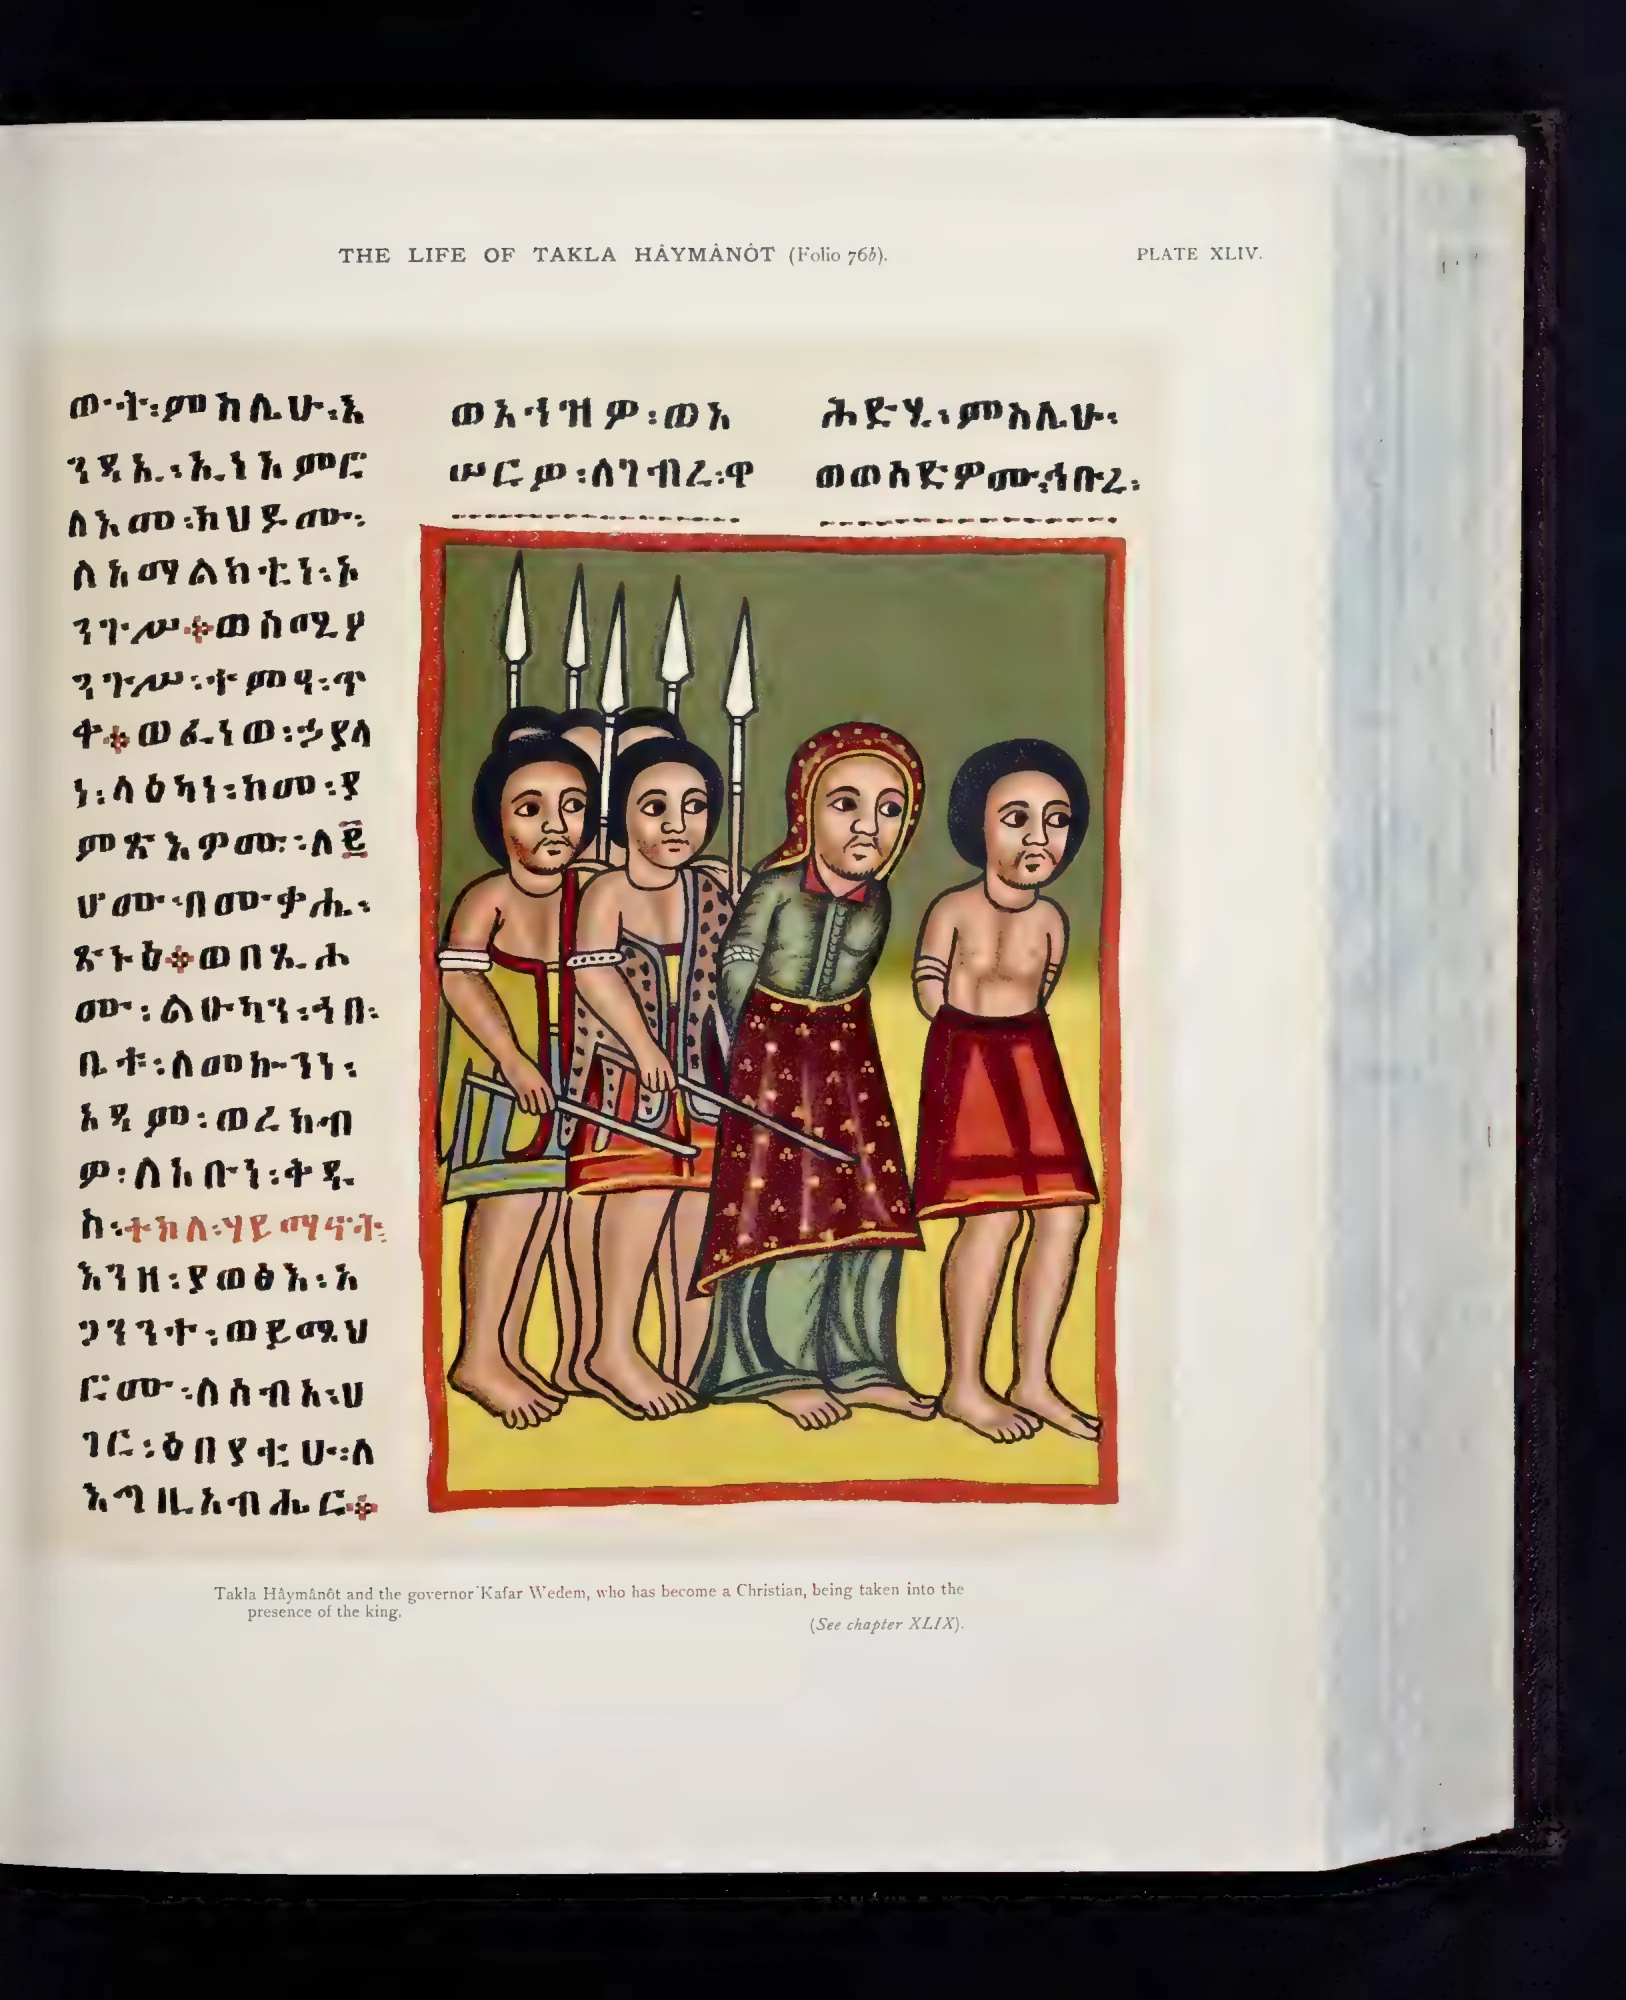 THE LIFE OF TAKLA HÂYMÂNÔT (Folio 76b).
PLATE XLIV.
ውት፡ምስሌሁ፡እ
ንዳኢ፡ኢነአምር
ለእመ፡ክህዶሙ፡
ለአማልክቲነ፡እ
ንጉሥ፨ወሰሚዖ
ንጉሥ፡ተምዖ፡ጥ
ቀ፨ወፈነወ፡ኃያላ
ነ፡ላዕካነ፡ከመ፡ያ
ምጽእዎሙ፡ለ፪
ሆሙ፡በሙቃሔ፡
ጽኑዕ፨ወበጺሖ
ሙ፡ልኡካን፡ኀበ፡
ቤተ፡ለመኰንን፡
አዳም፡ወረከብ
ዎ፡ለአቡነ፡ቅዱ
ስ፡ተክለ፡ሃይማኖት፡
እንዘ፡ያወፅእ፡አ
ጋንንተ፡ወይሜህ
ሮሙ፡ለሰብአ፡ሀ
ገር፡ዕበያቲሁ፡ለ
እግዚአብሔር፨
ወአኀዝዎ፡ወአ
ሠርዎ፡ለገብረ፡ዋ
ሕድሂ፡ምስሌሁ፡
ወወሰድዎሙ፡ኅቡረ፡
Takla Hâymânôt and the governor Kafar Wedem, who has become a Christian, being taken into the
presence of the king.
(See chapter XLIX).